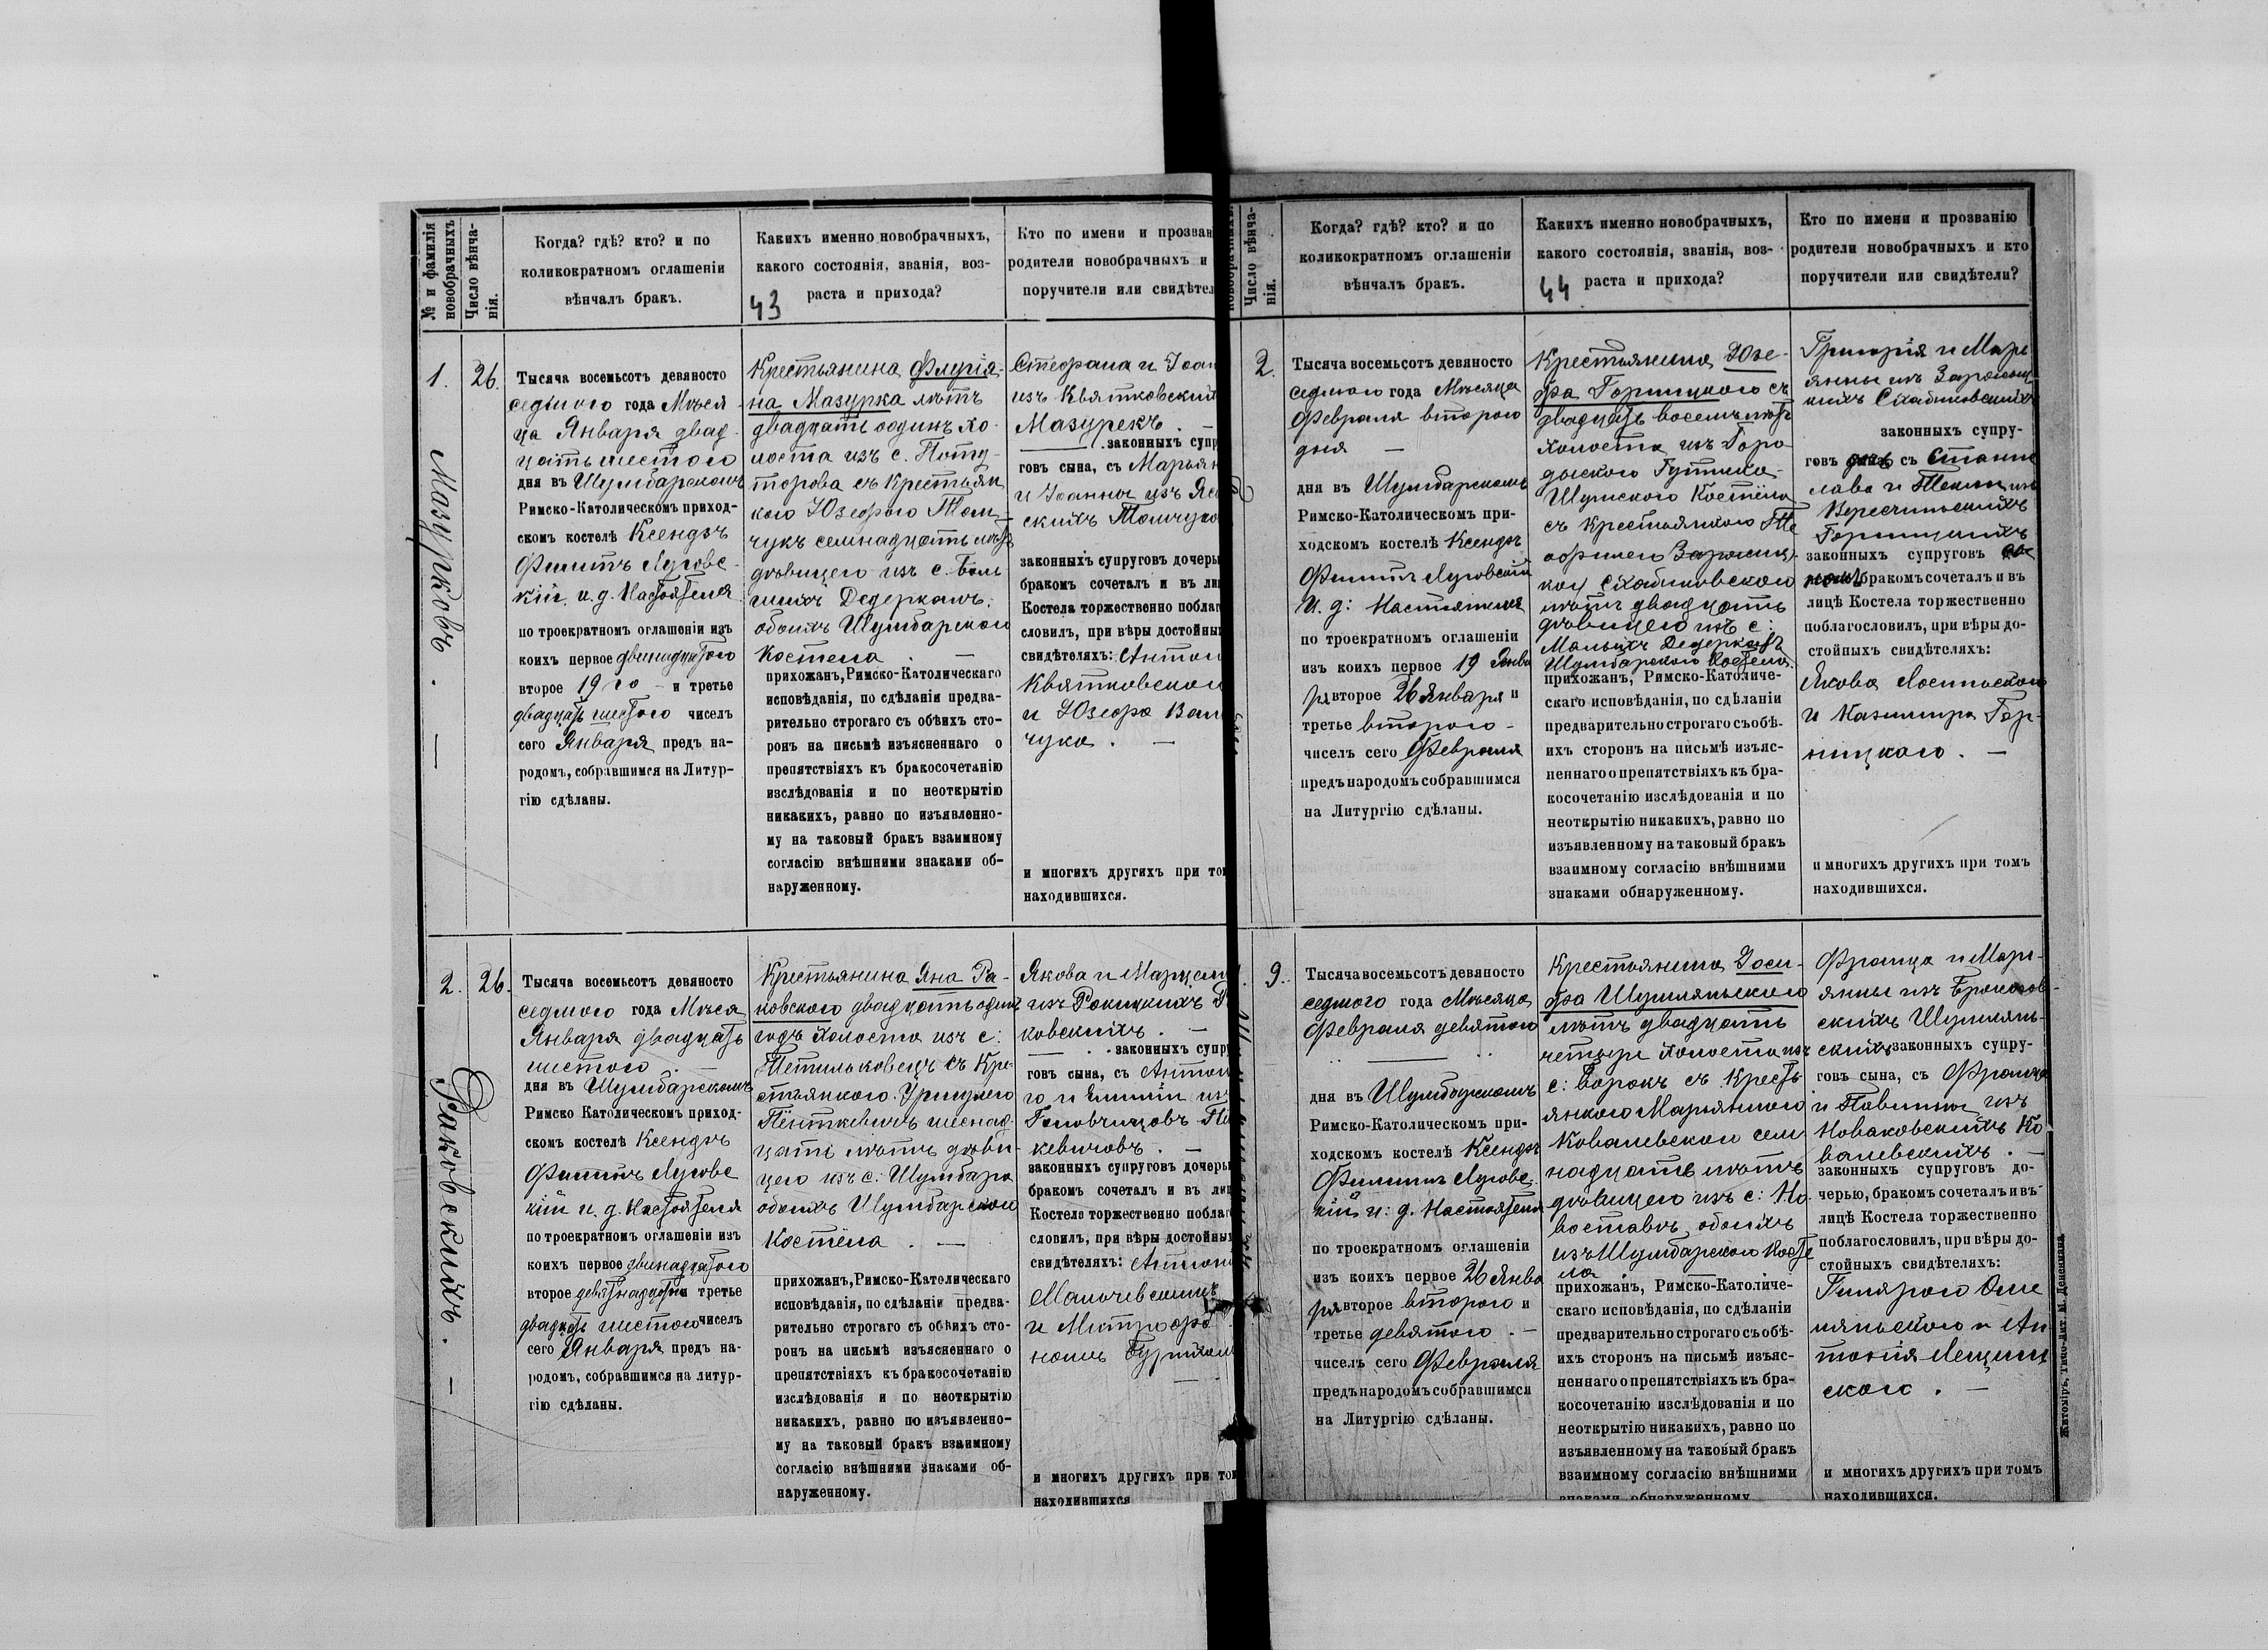 № и фамилія
новобрачныхъ
Число вѣнча-
нія.
Когда? гдѣ? кто? и по
коликократномъ оглашеніи
вѣнчалъ бракъ.
Какихъ именно новобрачныхъ,
какого состоянія, званія, воз-
раста и прихода?
43
Кто по имени и прозван
родители новобрачныхъ и
поручители или свидѣтел
1.
Мазурковъ. —
26.
Тысяча восемьсотъ девяносто
седьмого года Мѣся
ца Января двад-
цать шестого
дня въ Шумбарскомъ
Римско-Католическомъ приход-
скомъ костелѣ Ксендзъ
Филиппъ Лугове-
кій и. д. Настоятеля
по троекратномъ оглашеніи изъ
коихъ первое двинадцатого
второе 19го – и третье
двадцать шестого чиселъ
сего Января предъ на-
родомъ, собравшимся на Литур-
гію сдѣланы.
Крестьянина Флуріа-
на Мазурка лѣтъ
двадцать оодинъ хо-
лоста изъ с. Поту-
торова съ Крестьян
кою Юзефою Том-
чукъ семнадцать лѣтъ
дѣвицею изъ с. Боль
шихъ Дедеркалъ,
обоихъ Шумбарского
Костела. —
прихожанъ, Римско-Католическаго
исповѣданія, по сдѣланіи предва-
рительно строгаго съ обѣихъ сто-
ронъ на письмѣ изъясненнаго о
препятствіяхъ къ бракосочетанію
изслѣдованія и по неоткрытію
никакихъ, равно по изъявленно-
му на таковый бракъ взаимному
согласію внѣшними знаками об-
наруженному.
Стефана и Іоан
изъ Квятковский
Мазурекъ. —
законныхъ супр
говъ сына, съ Марьян
и Іоанны изъ Яс
скихъ Томчуко
законныхъ супруговъ дочеры
бракомъ сочеталъ и въ ли
Костела торжественно поблаг
словилъ, при вѣры достойны
свидѣтеляхъ: Антон
Квятковского
и Юзефа Вал
чука. —
и многихъ другихъ при том
находившихся.
2.
Раковскихъ. —
26.
Тысяча восемьсотъ девяносто
седмого года Мѣся
Января двадцать
шестого. —
дня въ Шумбарскомъ
Римско Католическомъ приход-
скомъ костелѣ Ксендзъ
Филиппъ Лугове
кій и. д. Настоятеля
по троекратномъ оглашеніи изъ
коихъ первое двинадцатого
второе девятнадцатого третье
двадцать шестого чиселъ
сего Января предъ на-
родомъ, собравшимся на литур-
гію сдѣланы.
Крестьянина Яна Ра-
ковского двадцать один
годъ холоста изъ с:
Тетильковецъ съ Кре-
стьянкою Уршулею
Пёнткевичъ шеснад-
цать лѣтъ дѣви-
цею изъ с: Шумбара
обоихъ Шумбарского
Костёла. —
прихожанъ, Римско-Католическаго
исповѣданія, по сдѣланіи предва-
рительно строгаго съ обѣихъ сто-
ронъ на письмѣ изъясненнаго о
препятствіяхъ къ бракосочетанію
изслѣдованія и по неоткрытію
никакихъ, равно по изъявленно-
му на таковый бракъ взаимному
согласію внѣшними знаками об-
наруженному.
Якова и Марцели
изъ Рокицкихъ Р
ковскихъ. —
законныхъ супру
говъ сына, съ Антон
го и Емиліи из
Головчицовъ Пё
кевичовъ. —
законныхъ супруговъ дочеры
бракомъ сочеталъ и въ лиц
Костела торжественно поблаг
словилъ, при вѣры достойны
свидѣтеляхъ: Антоні
Малачевскимъ
и Митрофа
номъ
и многихъ другихъ при том
находившихся
новобрачныхъ.
Число вѣнча-
нія.
Когда? гдѣ? кто? и по
коликократномъ оглашеніи
вѣнчалъ бракъ.
Какихъ именно новобрачныхъ,
какого состоянія, званія, воз-
раста и прихода?
44
Кто по имени и прозванію
родители новобрачныхъ и кто
поручители или свидѣтели?
2.
Тысяча восемьсотъ девяносто
седмого года Мѣсяца
Февраля второго
дня —
дня въ Шумбарскомъ
Римско-Католическомъ при-
ходскомъ костелѣ Ксендзъ
Филиппъ Луговскій
и. д: Настоятеля
по троекратномъ оглашеніи
изъ коихъ первое 19 Янва
ря второе 26 Января и
третье второго –
чиселъ сего Февраля
предъ народомъ собравшимся
на Литургію сдѣланы.
Крестьянина Юзе-
фа Горницкого съ
двадцать восемь лѣтъ
холоста изъ Горо
дыского
Шумского Костёла
съ крестьянкою Те
офилею
кою Схабиковскою
лѣтъ двадцать
дѣвицею изъ с:
Малыхъ Дедеркалъ
Шумбарского Костела.
прихожанъ, Римско-Католиче-
скаго исповѣданія, по сдѣланіи
предварительно строгаго съ обѣ-
ихъ сторонъ на письмѣ изъяс-
неннаго о препятствіяхъ къ бра-
косочетанію изслѣдованія и по
неоткрытію никакихъ, равно по
изъявленному на таковый бракъ
взаимному согласію внѣшними
знаками обнаруженному.
Григорія и Марь
янны изъ
Схабиковскихъ
законныхъ супру-
говъ съ Станис
лава и Теклы изъ
Горницкихъ
законныхъ супруговъ
бракомъ сочеталъ и въ
лицѣ Костела торжественно
поблагословилъ, при вѣры до-
стойныхъ свидѣтеляхъ:
Якова
и Казимира Гор-
ницкого. —
и многихъ другихъ при томъ
находившихся.
9.
Тысяча восемьсотъ девяносто
седмого года Мѣсяца
Февраля девятого
дня въ Шумбарскомъ
Римско-Католическомъ при-
ходскомъ костелѣ Ксендзъ
Филиппъ Лугове
кій и: д. Настоятеля
по троекратномъ оглашеніи
изъ коихъ первое 26 Янва
ря второе второго и
третье девятого. –
чиселъ сего Февраля
предъ народомъ собравшимся
на Литургію сдѣланы.
Крестьянина Іоси-
фа Шумляньского
лѣтъ двадцать
четыре холоста изъ
с: Борокъ съ Кресть
янкою Марьянною
Ковалевскою сем
надцать лѣтъ
дѣвицею изъ с: Но-
воставъ, обоихъ
изъ Шумбарского Косте
ла
прихожанъ, Римско-Католиче-
скаго исповѣданія, по сдѣланіи
предварительно строгаго съ обѣ-
ихъ сторонъ на письмѣ изъяс-
неннаго о препятствіяхъ къ бра-
косочетанію изслѣдованія и по
неоткрытію никакихъ, равно по
изъявленному на таковый бракъ
взаимному согласію внѣшними
знаками обнаруженному
Франца и Марь-
янны изъ
скихъ Шумлянь-
скихъ законныхъ супру-
говъ сына, съ Франца
и Павлины изъ
Новаковскихъ Ко
валевскихъ. —
законныхъ супруговъ до-
черью, бракомъ сочеталъ и въ
лицѣ Костела торжественно
поблагословилъ, при вѣры до-
стойныхъ свидѣтеляхъ:
Гилярого Оме
ляньского и Ан
тонія Лещин
ского. —
и многихъ другихъ при томъ
находившихся.
Житоміръ, Типо-Лит. М. Дененмана